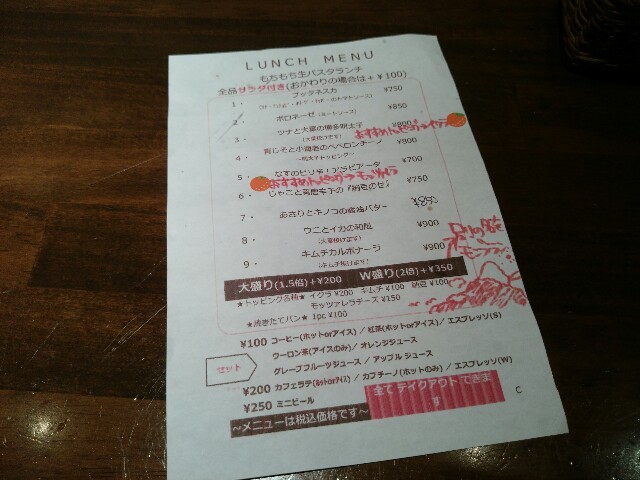 LUNCH MENU
もちもち生パスタランチ
全品サラダ付き(おかわりの場合は+¥100)
1・ プッタネスカ ¥750
2・ ボロネーゼ(ミートソース) ¥850
3・ ツナと大葉の博多明太子 ¥800
(大葉抜けます)
おすすめトッピング→イクラ
4・ 青じそと小海老のペペロンチーノ ¥800
5・ なすのピリ辛!アラビアータ ¥700
おすすめトッピング→モッツァレラ
6・ じゃこと高菜辛子の ¥750
7・ あさりとキノコの醤油バター ¥850
8・ ウニとイカの和風 ¥900
(大葉抜けます)
9・ キムチカルボナージ ¥900
(キムチ抜けます)
大盛り(1.5倍)+¥200 W盛り(2倍)+¥350
★トッピング各種★ イクラ¥200 キムチ¥100 納豆¥100
モッツァレラチーズ¥150
★焼きたてパン★ 1pc ¥100
セット
¥100 コーヒー(ホットorアイス) / 紅茶(ホットorアイス) / エスプレッソ(S)
ウーロン茶(アイスのみ) / オレンジジュース
グレープフルーツジュース / アップルジュース
¥200 カフェラテ(ホットorアイス) / カプチーノ(ホットのみ) / エスプレッソ(W)
¥250 ミニビール
全てテイクアウトできます
~メニューは税込価格です~
C